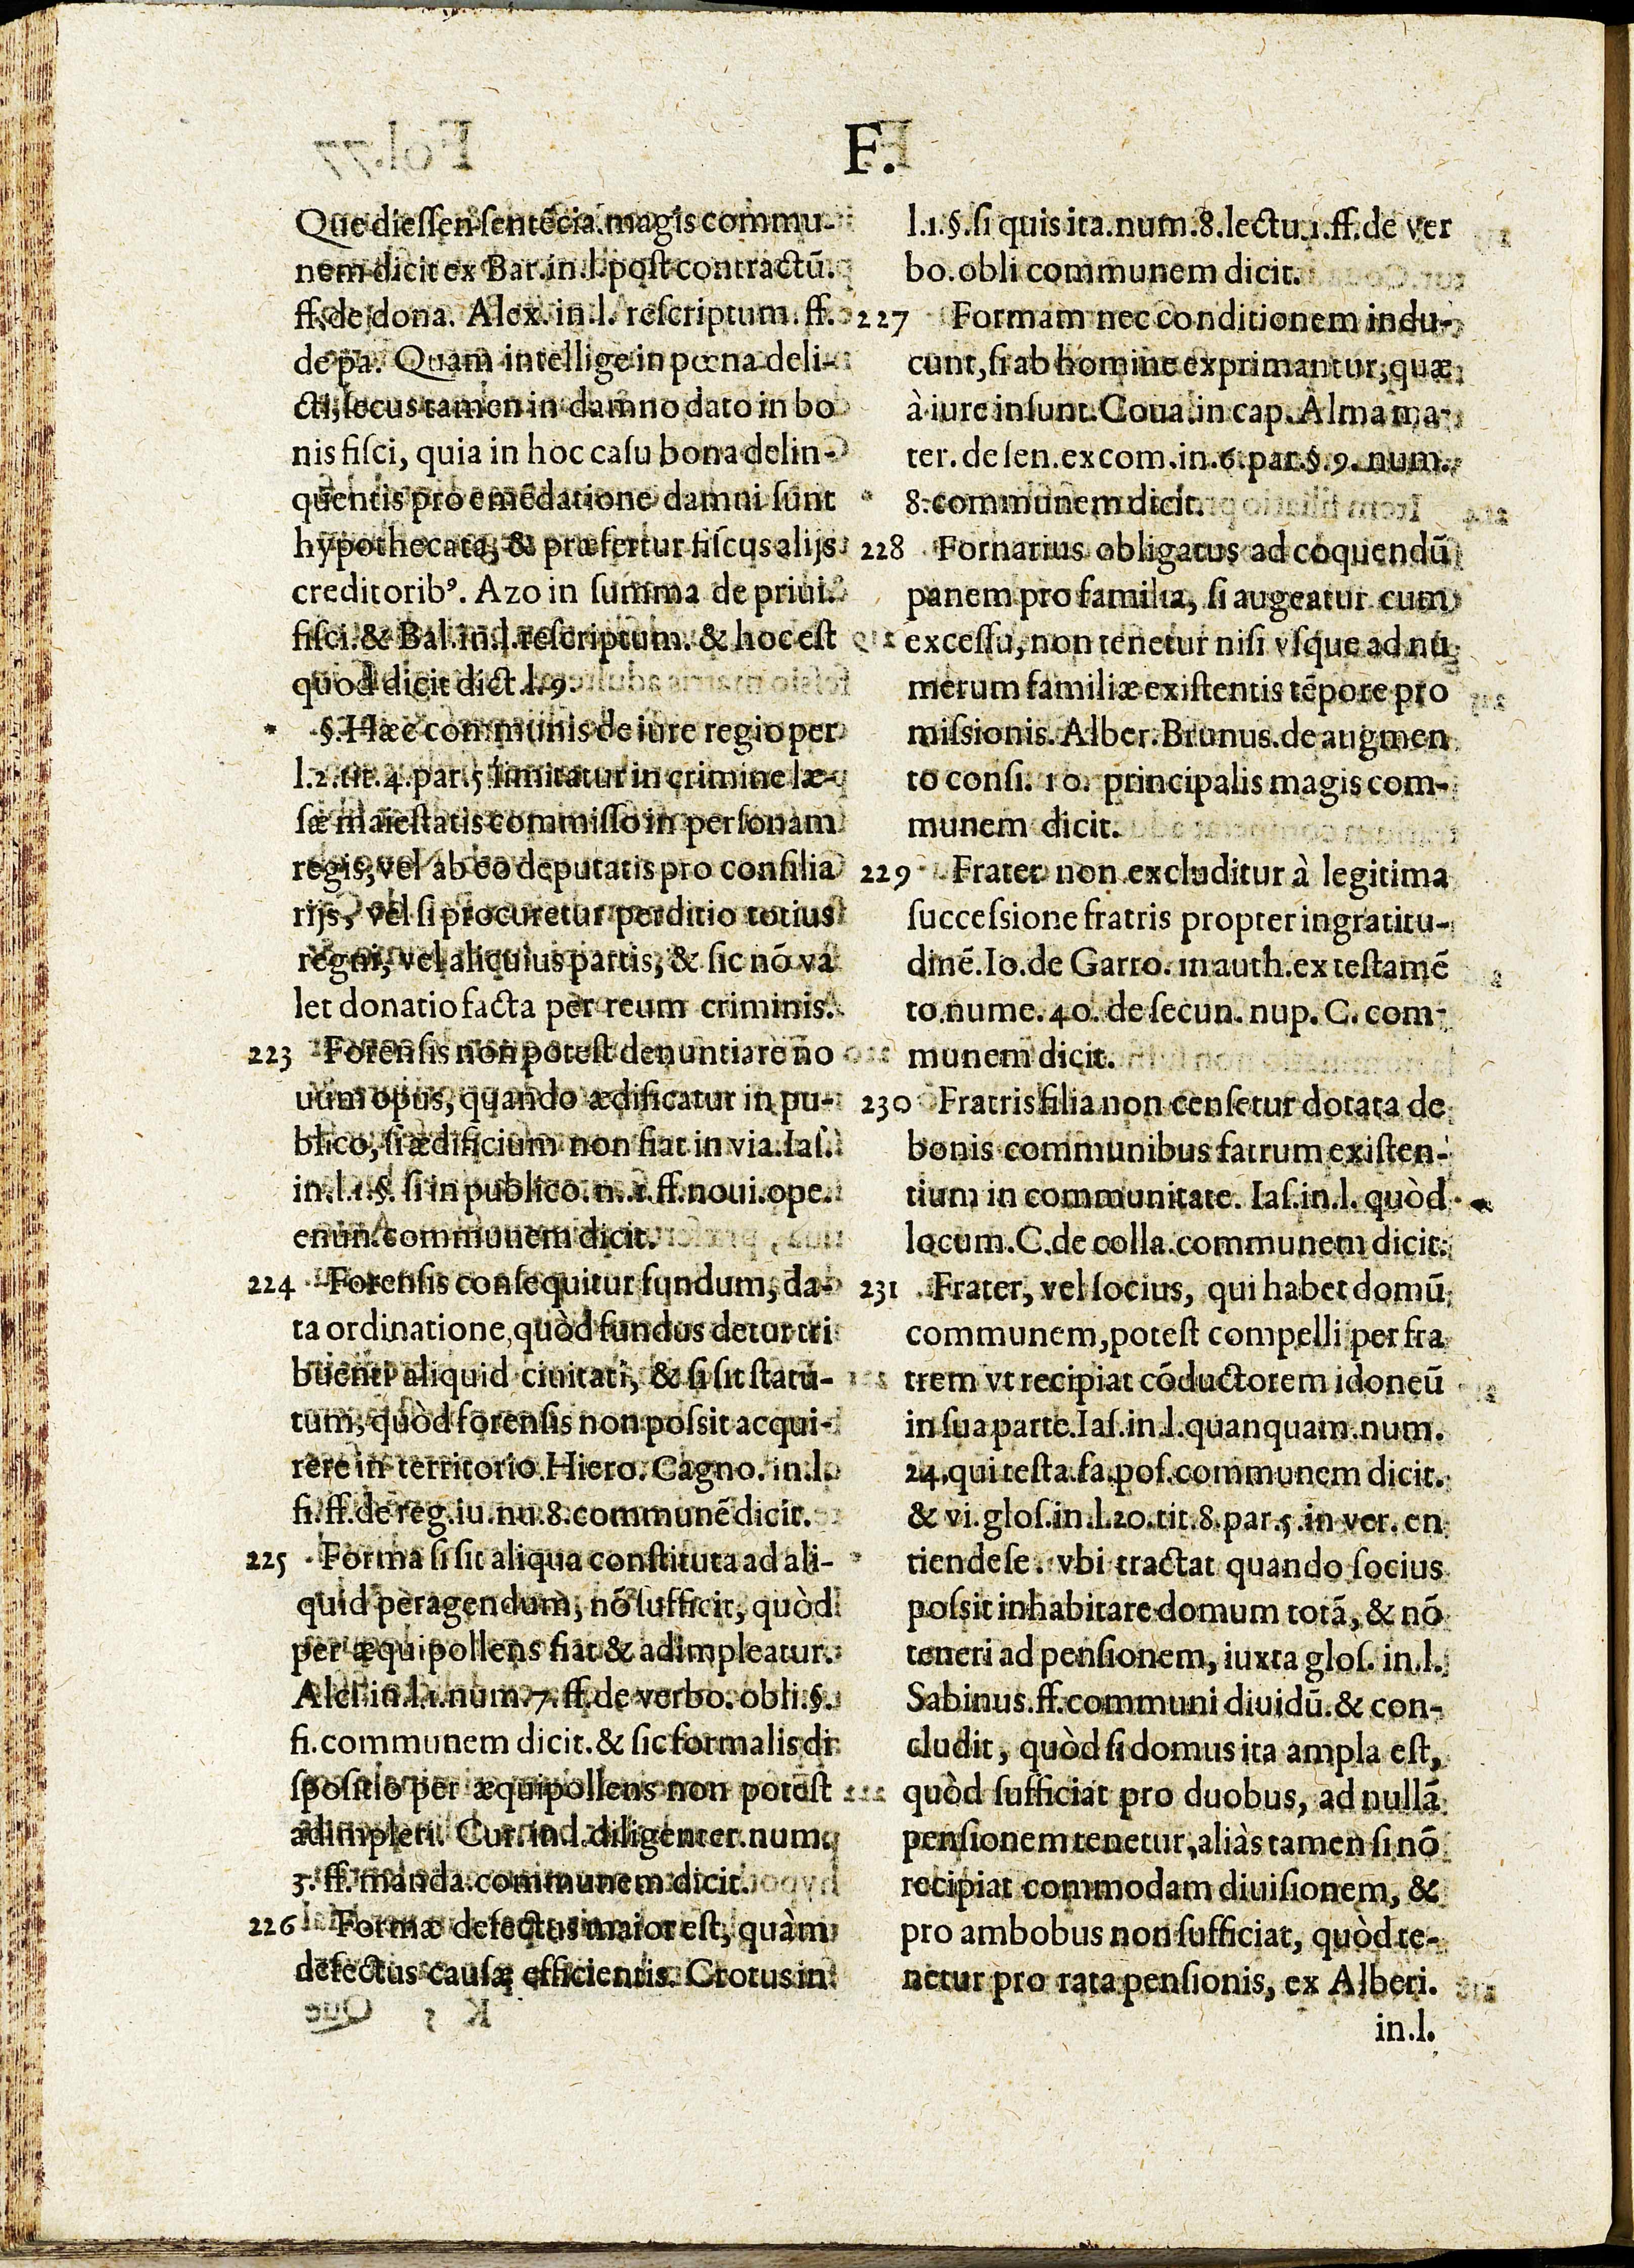 F.
Que dieſſen ſentẽcia. magis commu-
nem dicit ex Bar. in. l. poſt contractũ.
ff. de dona. Alex. in. l. reſcriptum. ff.
de pa. Quam intellige in pœna deli-
cti, ſecus tamen in damno dato in bo
nis fiſci, quia in hoc caſu bona delin-
quentis pro emẽdatione damni ſunt
hypothecata, & præfertur fiſcus alijs
creditoribꝰ. Azo in ſumma de priui.
fiſci. & Bal. in. l. reſcriptum. & hoc eſt
quod dicit dict. l. 9.
* §. Hæc communis de iure regio per
l. 2. tit. 4. par. 5 limitatur in crimine læ-
ſæ maieſtatis commiſſo in perſonam
regis, vel ab eo deputatis pro conſilia
rijs, vel ſi procuretur perditio totius
regni, vel alicuius partis, & ſic nõ va
let donatio facta per reum criminis.
223 Forenſis non poteſt denuntiare no
uum opus, quando ædificatur in pu-
blico, ſi ædificium non fiat in via. Iaſ.
in. l. 1. §. ſi in publico. n. 1. ff. noui. ope.
enun. communem dicit.
224 Forenſis conſequitur fundum, da-
ta ordinatione, quòd fundus detur tri
buenti aliquid ciuitati, & ſi ſit ſtatu-
tum, quòd forenſis non poſsit acqui-
rere in territorio. Hiero. Cagno. in. l.
fi. ff. de reg. iu. nu. 8. communẽ dicit.
225 Forma ſi ſit aliqua conſtituta ad ali-
quid peragendum, nõ ſufficit, quòd
per æquipollens fiat & adimpleatur.
Alex. in. l. 1. num. 7. ff. de verbo. obli. §.
fi. communem dicit. & ſic formalis di
ſpoſitio per æquipollens non poteſt
adimpleri. Cur. in. l. diligenter. num.
3. ff. manda. communem dicit.
226 Formæ defectus maior eſt, quàm
defectus cauſę efficientis. Crotus in
l. 1. §. ſi quis ita. num. 8. lectu. 1. ff. de ver
bo. obli communem dicit.
227 Formam nec conditionem indu-
cunt, ſi ab homine exprimantur, quæ
à iure inſunt. Coua. in cap. Alma ma-
ter. de ſen. excom. in. 6. par. §. 9. num.
8. communem dicit.
228 Fornarius obligatus ad coquendũ
panem pro familia, ſi augeatur cum
exceſſu, non tenetur niſi vſque ad nu
merum familiæ exiſtentis tẽpore pro
miſsionis. Alber. Brunus. de augmen
to conſi. 10. principalis magis com-
munem dicit.
229 Frater non excluditur à legitima
ſucceſsione fratris propter ingratitu-
dinẽ. Io. de Garro. in auth. ex teſtamẽ
to. nume. 40. de ſecun. nup. C. com-
munem dicit.
230 Fratris filia non cenſetur dotata de
bonis communibus fatrum exiſten-
tium in communitate. Iaſ. in. l. quòd
locum. C. de colla. communem dicit.
231 Frater, vel ſocius, qui habet domũ
communem, poteſt compelli per fra
trem vt recipiat cõductorem idoneũ
in ſua parte. Iaſ. in. l. quanquam. num.
24. qui teſta. fa. poſ. communem dicit.
& vi. gloſ. in. l. 20. tit. 8. par. 5. in ver. en
tiendeſe. vbi tractat quando ſocius
poſsit inhabitare domum totã, & nõ
teneri ad penſionem, iuxta gloſ. in. l.
Sabinus. ff. communi diuidũ. & con-
cludit, quòd ſi domus ita ampla eſt,
quòd ſufficiat pro duobus, ad nullã
penſionem tenetur, aliàs tamen ſi nõ
recipiat commodam diuiſionem, &
pro ambobus non ſufficiat, quòd te-
netur pro rata penſionis, ex Alberi.
in. l.